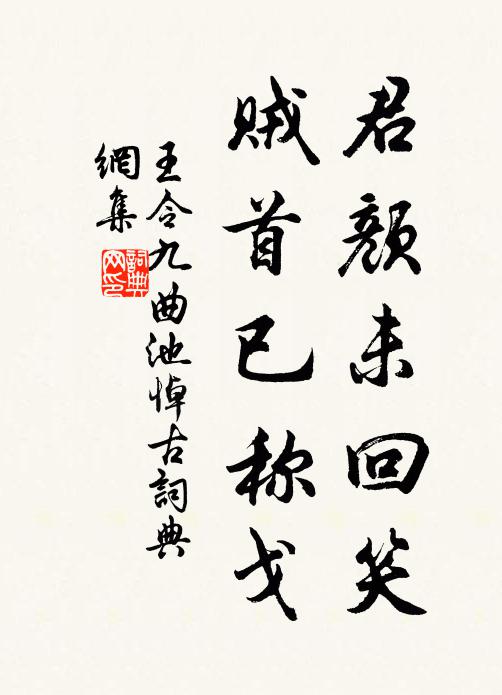 君颜未回笑
贼首已称戈
王令九曲池悼古詞典
網集
詞典
网印